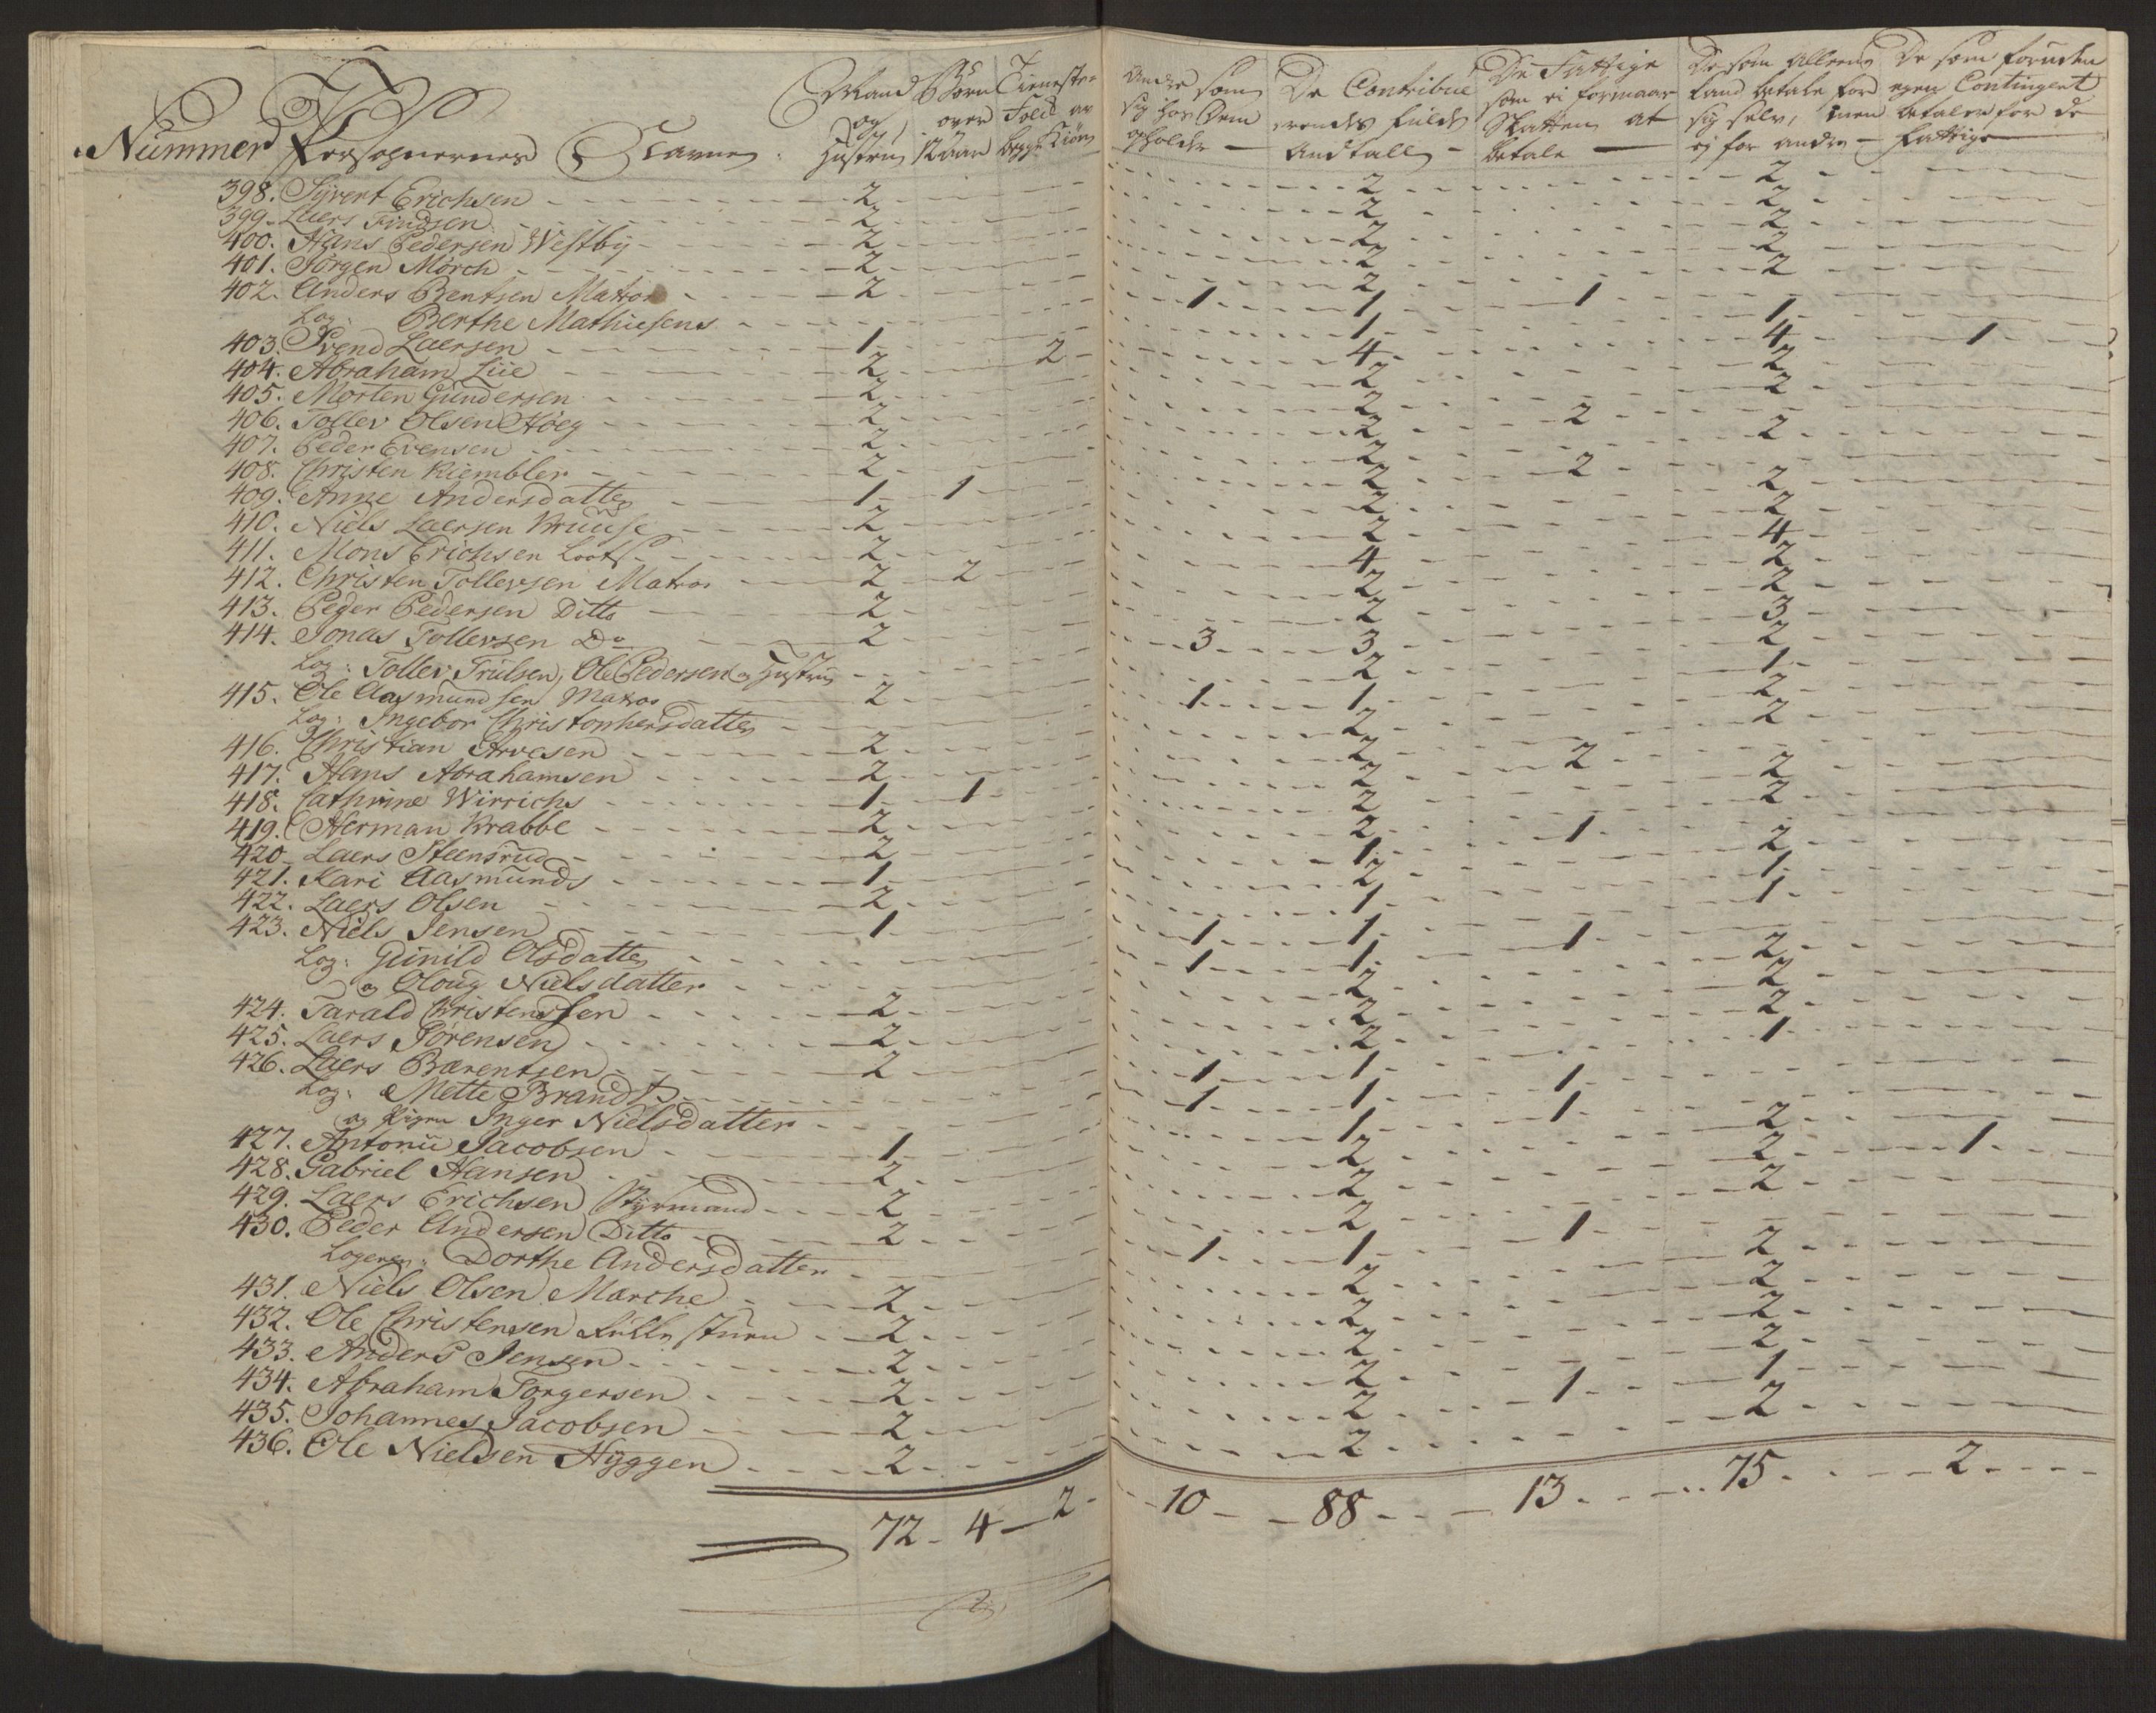 Nummer Persohnernes Navne. Mand og Hustru Børn over 12 Aar Tieneste Folk av begge Kiøn Andre som sig hos Dem opholder De Contribuerendes fulde Andtall De Fattige som ei formaar Skatten at betale De som Alleene kand betale for sig selv, men ej for andre De som foruden egen Contingent betaler for de Fattige
398. Sÿvert Erichsen 2 2 2
399. Laers Findsen 2 2 2
400. Hans Pedersen Westbÿ 2 2 2
401. Jørgen Mörch 2 2 2
402. Anders Bentsen Matros 2 2 2
Log: Berthe Mathiesens 1 1 1
403. Svend Laersen 1 1 1
404. Abraham Lüe 2 2 4 4 1
405. Morten Gundersen 2 2 2
406. Tollev Olsen Höeg 2 2 2
407. Peder Evensen 2 2 2
408. Christen Kiembler 2 2 2
409. Anne Andersdatter 1 1 2 2
410. Niels Laersen Kruuse 2 2 2
411. Mons Erichsen Loots 2 2 2
412. Christen Tollevsen Matros 2 2 4 4
413. Peder Pedersen Ditto 2 2 2
414. Jonas Tollevsen Do 2 2 2
Log: Tollev Trulsen, Ole Pedersen og Hustrue 3 3 3
415. Ole Aasmundsen Matros 2 2 2
Log: Ingebor Christophersdatter 1 1 1
416. Christian Arvesen 2 2 2
417. Hans Abrahamsen 2 2 2
418. Cathrine Wirrichs 1 1 2 2
419. Herman Krabbe 2 2 2
420. Laers Steensrud 2 2 2
421. Kari Aasmunds 1 1 1
422. Laers Olsen 2 2 2
423. Niels Jensen 1 1 1
Log: Gunild Olsdatter 1 1 1
og Oloug Nielsdatter 1 1 1
424. Tarald Christensen 2 2 2
425. Laers Sörensen 2 2 2
426. Laers Bærentsen 2 2 2
Log: Mette Brandt 1 1 1
og Pigen Inger Nielsdatter 1 1 1
427. Antoni Jacobsen 1 1 1
428. Gabriel Hansen 2 2 2
429. Laers Erichsen Styrmand 2 2 2 1
430. Peder Andersen Ditto 2 2 2
Logerer: Dorthe Andersdatter 1 1 1
431. Niels Olsen Marche 2 2 2
432. Ole Christensen 2 2 2
433. Anders Jensen 2 2 2
434. Abraham Torgersen 2 2 2
435. Johannes Jacobsen 2 2 1 1
436. Ole Nielsen Hÿggen 2 2 2
72 4 2 10 88 13 75 2